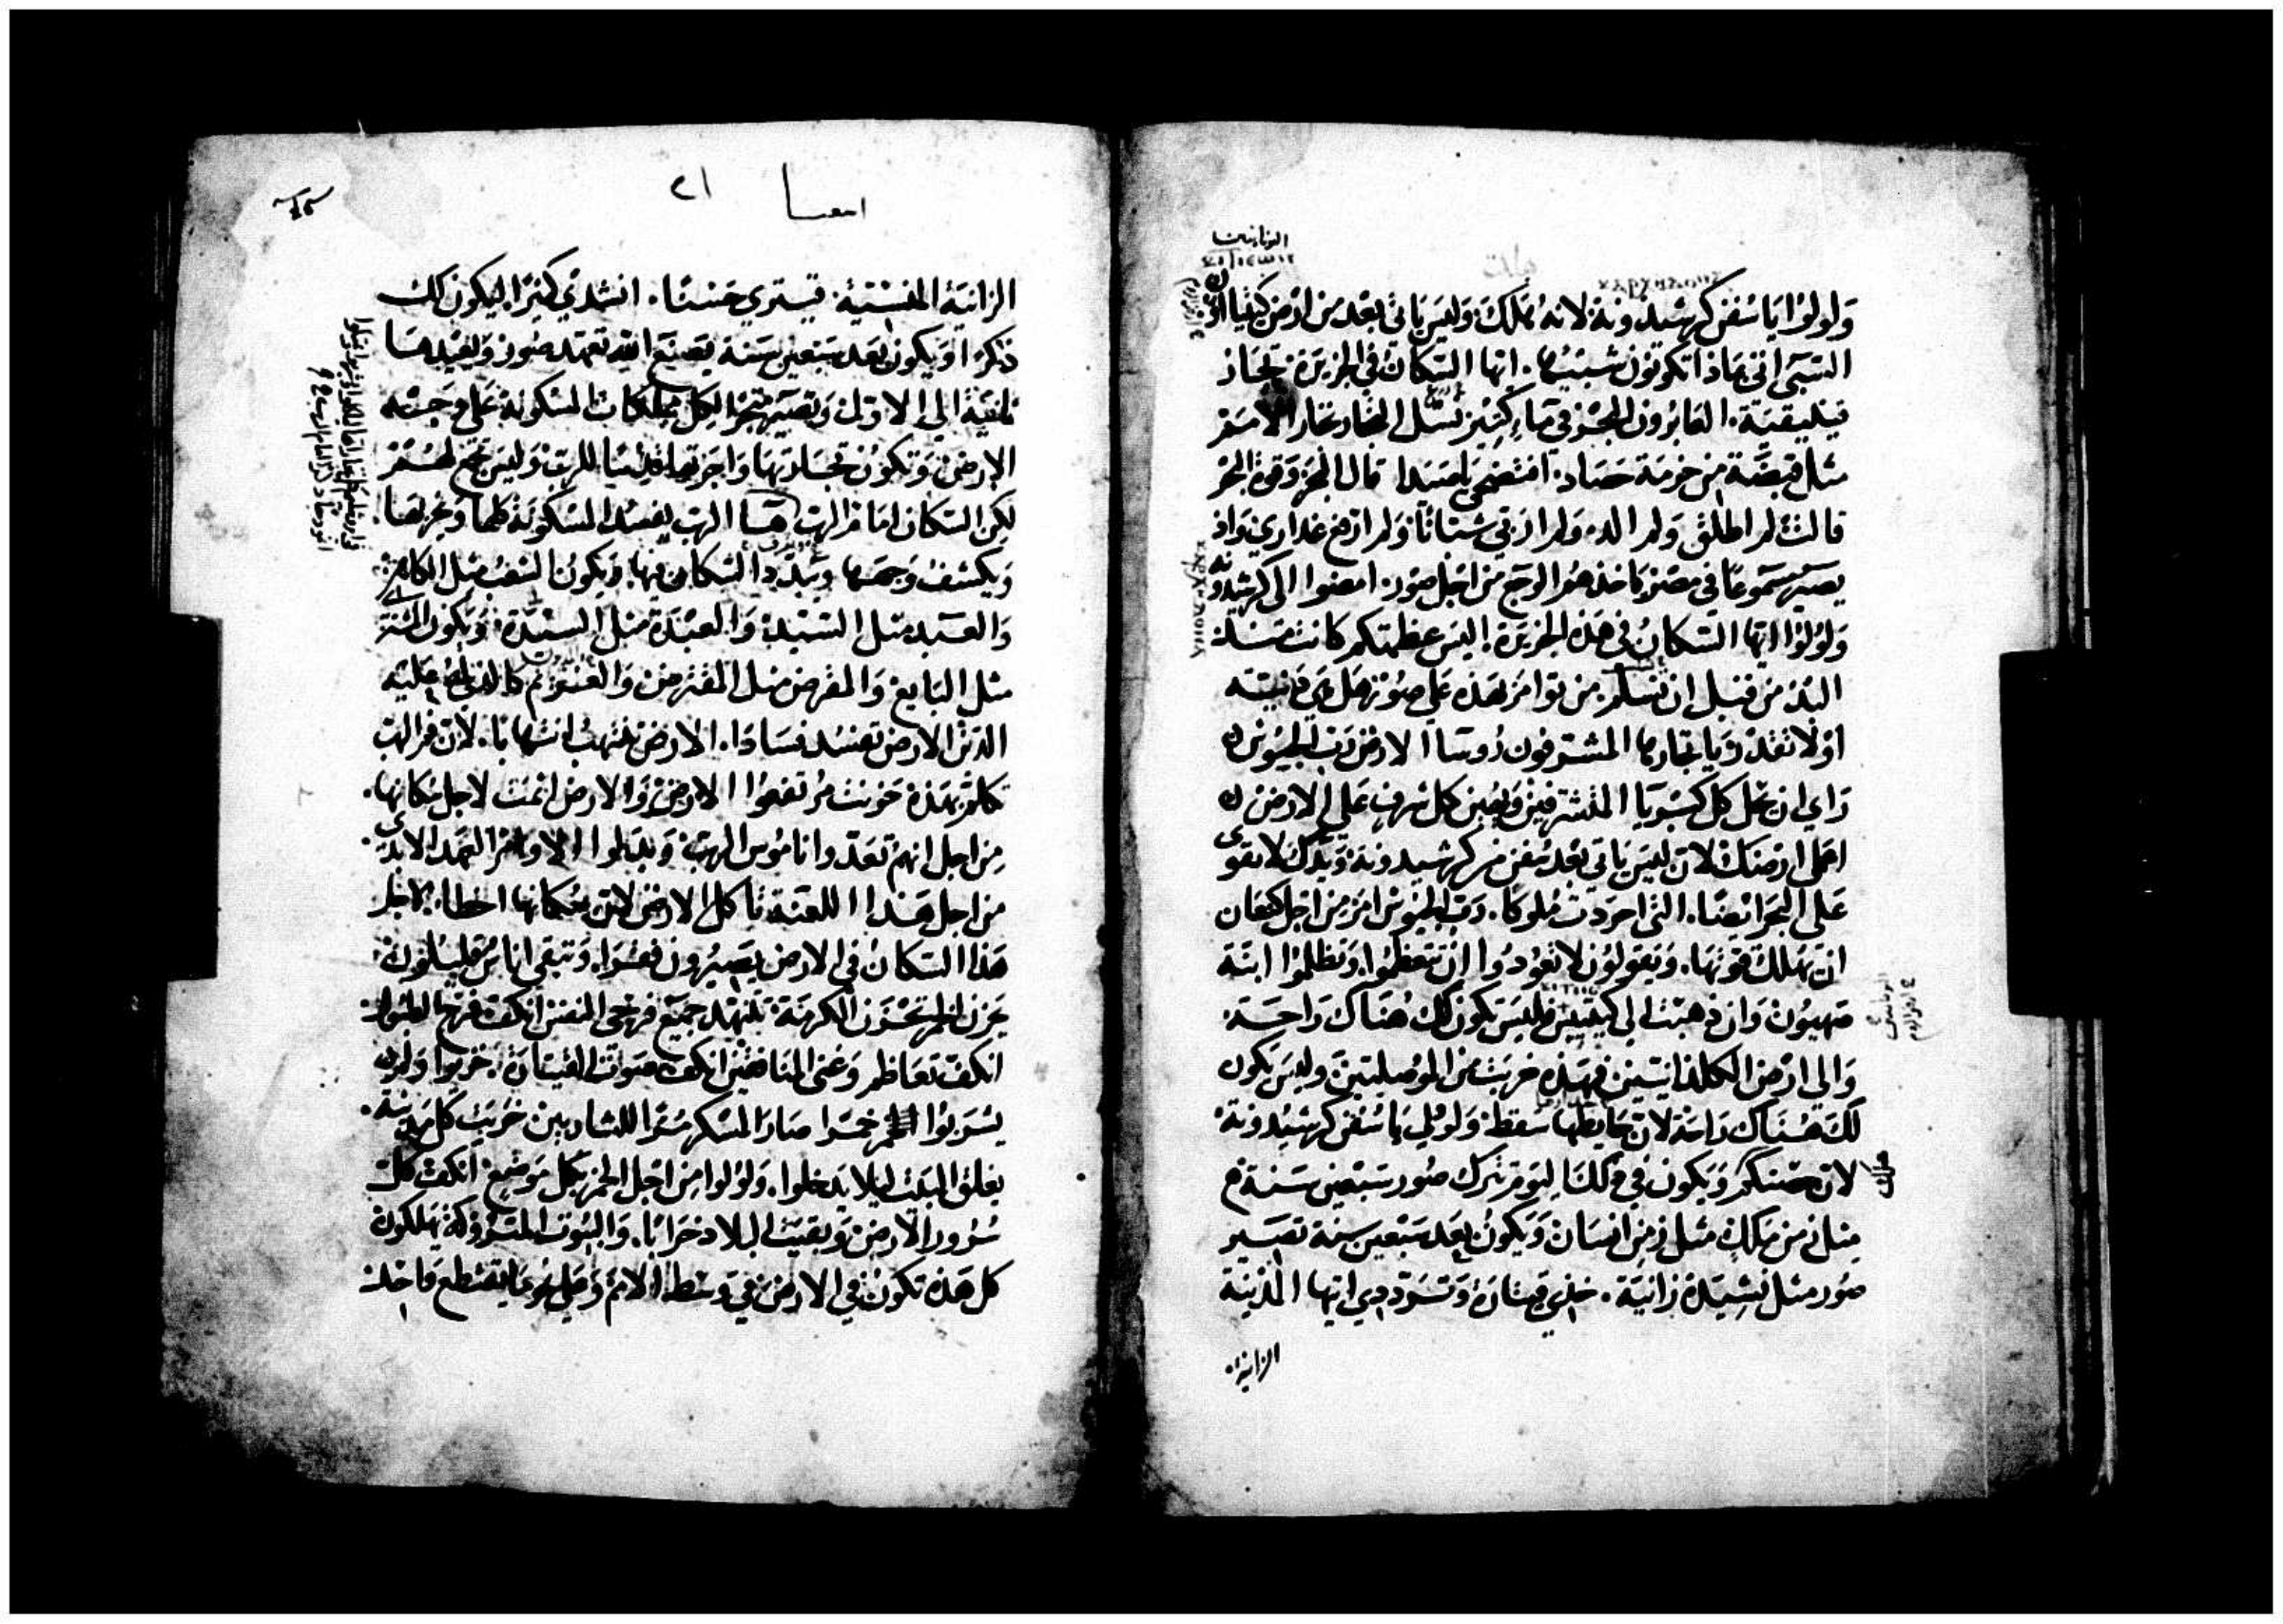 ولولوا يا سفن كرشيدونة لانه هلك وليس ياتى بعد من ارض كيتيا اوان
السبى اتى بماذا تكونون شبيها. ايها السكان فى الجزيرة تجار
فينيقية. العابرون البحر فى ماء كثير نسل التجار تجار الامصر
مثل قبضة من خزمة حصاد. افتضحى يا صيدا قال البحر وقوة البحر
قالت لم اطلق ولم الد. ولم اربى شبانا ولم ارفع عذارى واذ
يصير مسموعا فى مصر ياخذهم الوجع من اجل صور. امضوا الى كرشيدونة
ولولوا ايها السكان فى هذه الجزيرة. اليس عظمتكم كانت منذ
البدئ من قبل ان تسلم. من توامر بهذه على صور هل هى دنيئة
او لا تقدر ويا تجارها المشرفون روسا الارض رب الجيوش
راى ان يحل كل كبريا المتشرفين ويهين كل شرف على الارض
اعمل ارضك لان ليس ياتى بعد سفن من كرشيدونة ويدك لا تقوى
على البحر ايضا. التى احردت ملوكا. رب الجيوش امر من اجل كنعان
ان يهلك قوتها. ويقولون لا تعودوا ان تتعظموا وتظلموا ابنة
صهيون وان ذهبت الى كيتيين فليس تكون لك هناك راحة.
والى ارض الكلدانيين فهذه خربت من الموصليين وليس يكون
لك هناك راحة لان حايطها سقط ولولى يا سفن كرشيدونة
لان حصنكم ويكون فى ذلك اليوم تترك صور سبعين سنة
مثل زمن ملك مثل زمن انسان ويكون بعد سبعين سنة تصير
صور مثل نشيدة زانية. خذى قيثارة وتسودى ايتها المدينة
الزانية
اشعيا ٢١
الزانية المنسية. قيثرى حسنا. انشدى كثيرا ليكون لك
ذكرا ويكون بعد سبعين سنة يصنع الله تعهد صور ويعيدها
ايضا الى الاول وتصير متجرا لكل مملكات المسكونة على وجه
الارض. وتكون تجارتها واجرتها قدسا للرب وليس تجمع لهم
لكن السكان امام الرب. هوذا الرب يفسد المسكونة كلها ويخربها
ويكشف وجهها ويبدد السكان فيها. ويكون الشعب مثل الكاهن
والعبد مثل السيد والعبدة مثل السيدة ويكون المشترى
مثل البايع والمقرض مثل المقترض والغريم كالذى له عليه
الدين الارض تفسد فسادا. الارض تنتهب انتهابا. لان فم الرب
تكلم بهذه حزنت مرتفعوا الارض والارض اثمت لاجل سكانها.
من اجل انهم تعدوا ناموس الرب وبدلوا الاوامر العهد الابدى
من اجل هذا اللعنة تاكل الارض لان سكانها اخطاء لاجل
هذا السكان فى الارض يصيرون فقرا. وتبقى اناس قليلون.
يحزن الخمر تحزن الكرمة تتنهد جميع فرحى النفس انكف فرح الطبول
انكف تعاظم وغنى المنافقين انكف صوت القيثارة. خزيوا ولم
يشربوا الخمر خمرا صار المسكر مرا للشاربين خربت كل مدينة
يغلق البيت ليلا يدخلوا. ولولوا من اجل الخمر بكل موضع انكف كل
سرور الارض وبقيت البلاد خرابا. والبيوت المتروكة يهلكون
كل هذه تكون فى الارض فى وسط الامم